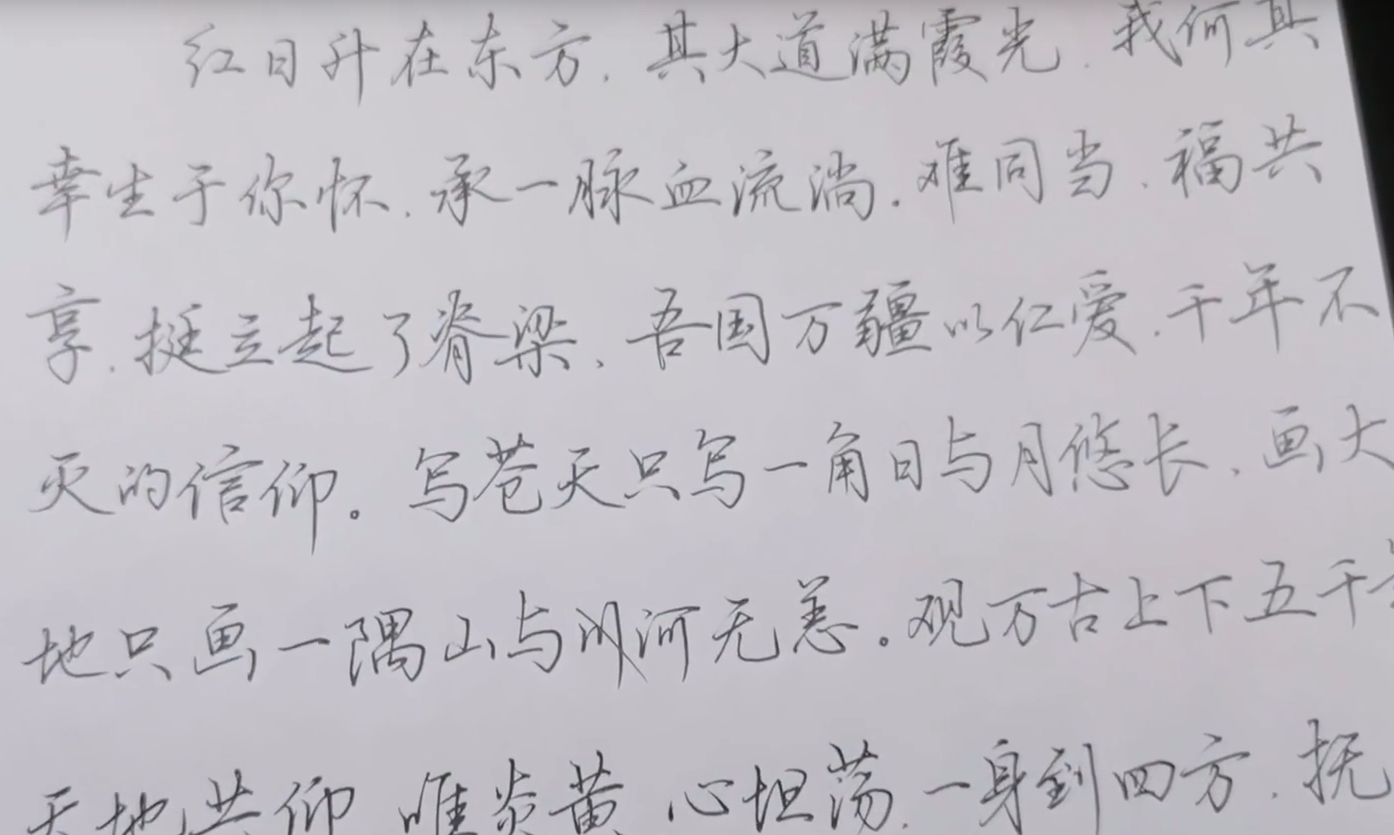 红日升在东方,其大道满霞光.我何其
幸生于你怀,承一脉血流淌.难同当,福共
享,挺立起了脊梁,吾国万疆以仁爱,千年不
灭的信仰。写苍天只写一角日与月悠长,画大
地只画一隅山与川河无恙。观万古上下五千
天地共仰 唯炎黄 心坦荡,一身到四方,抚